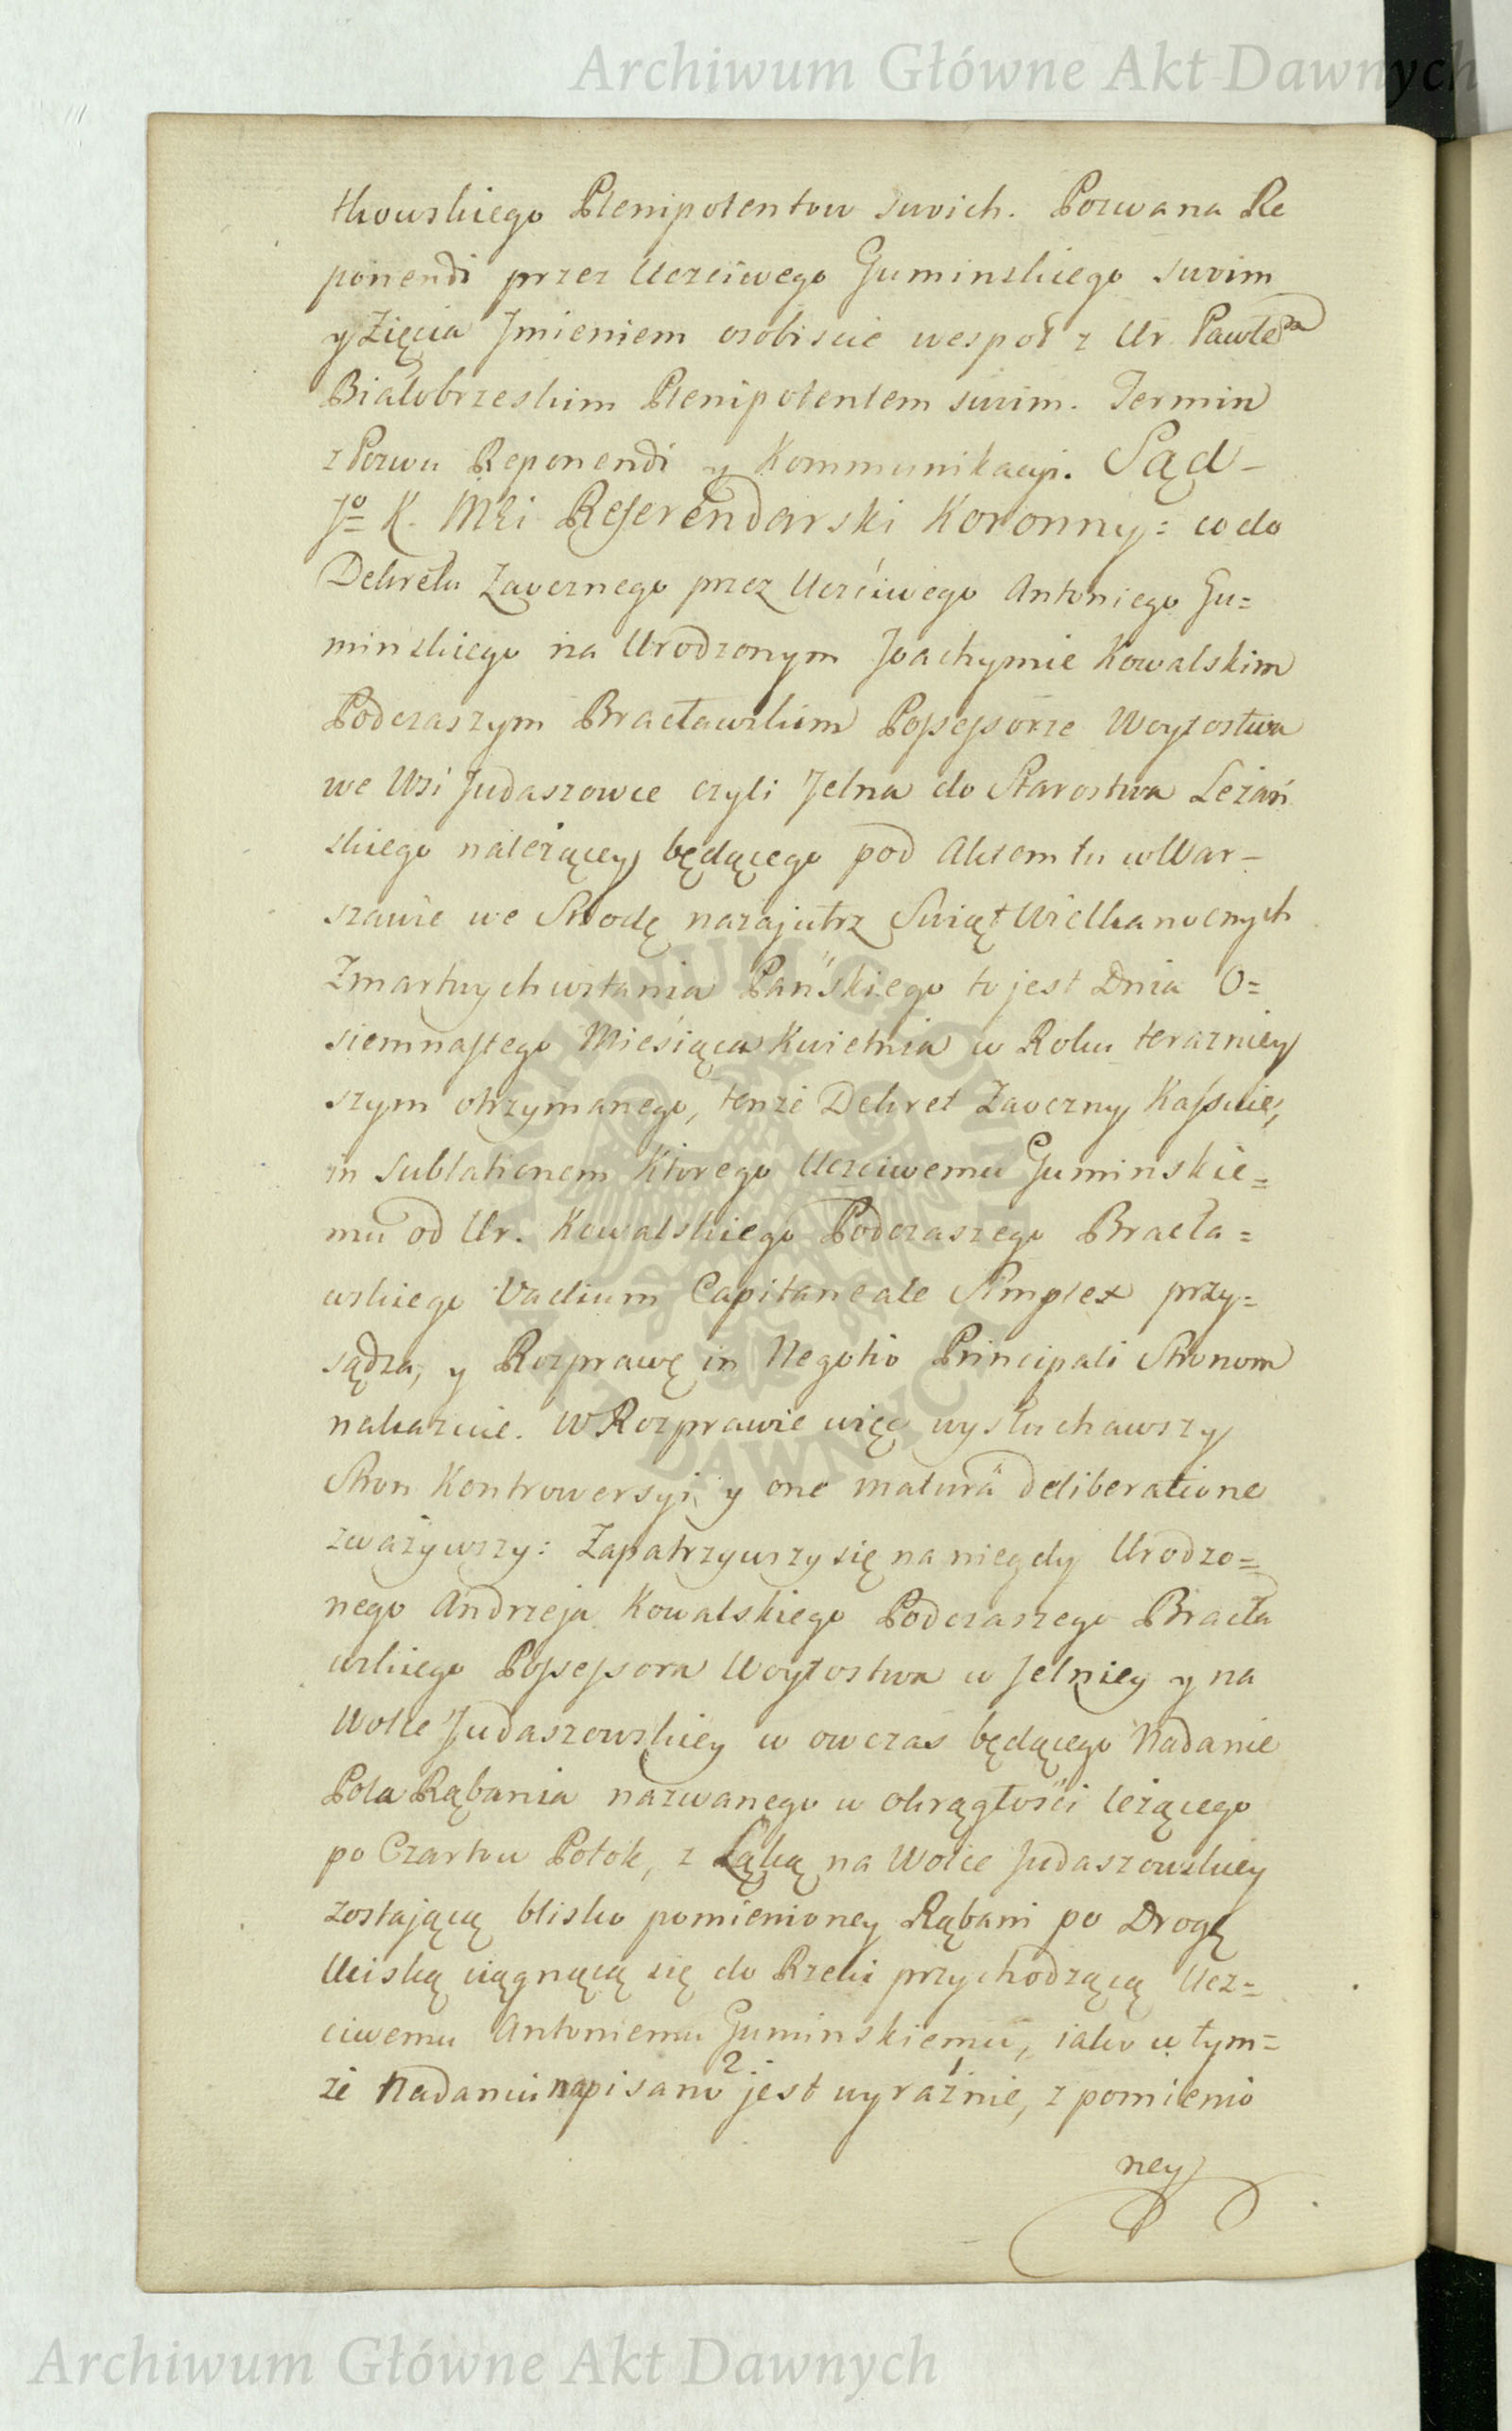 Archiwum Główne Akt Dawnych
tkowskiego Plenipotentow swoich. Pozwana Re
ponendi przez Uczciwego Guminskiego swoim
y Zięcia Jmieniem osobiscie wespoł z Ur. Pawłem
Białobrzeskim Plenipotentem swim. Termin
z Pozwu Reponendi y Kommunikacyi. Sąd
Jº K. Mci Referendarski Koronny: co do
Dekretu Zaocznego przez Uczciwego Antoniego Gu=
minskiego na Urodzonym Joachymie Kowalskim
Podczaszym Bracławskim Possessorze Woytostwa
we Wsi Judaszowce czyli Jelna do Starostwa Leżań
skiego należącey będącego pod Aktem tu w War-
szawie we Srodę nazajutrz Swiąt Wielkanocnych
Zmartwychwstania Pańskiego to jest Dnia O=
siemnastego Miesiąca Kwietnia w Roku terazniey
szym otrzymanego, tenże Dekret Zaoczny Kassuie,
in Sublationem ktorego Uczciwemu Guminskie=
mu od Ur. Kowalskiego Podczaszego Bracła=
wskiego Vadium Capitaneale Simplex przy=
sądza, y Rozprawę in Negotio Principali Stronom
nakazuie. W Rozprawie więc wysłuchawszy
Stron Kontrowersyi, y one maturä deliberatione
zważywszy: Zapatrzywszy się na niegdy Urodzo=
nego Andrzeja Kowalskiego Podczaszego Bracła
wskiego Possessora Woytostwa w Jelniey y na
Wolce Judaszowskiey w owczas będącego Nadanie
Pola Rąbania nazwanego w okrągłości leżącego
po Czartow Potok, z Łąką na Wolce Judaszowskiey
zostającą blisko pomienioney Rąbani po Drogę
Uciską ciągnącą się do Rzeki przychodzącą Ucz=
ciwemu Antoniemu Guminskiemu, iako w tym=
że Nadaniu napisano 2 jest wyraźnie 1, z pomienio
ney
ARCHIWUM GŁÓWNE
AKT DAWNYCH
Archiwum Główne Akt Dawnych